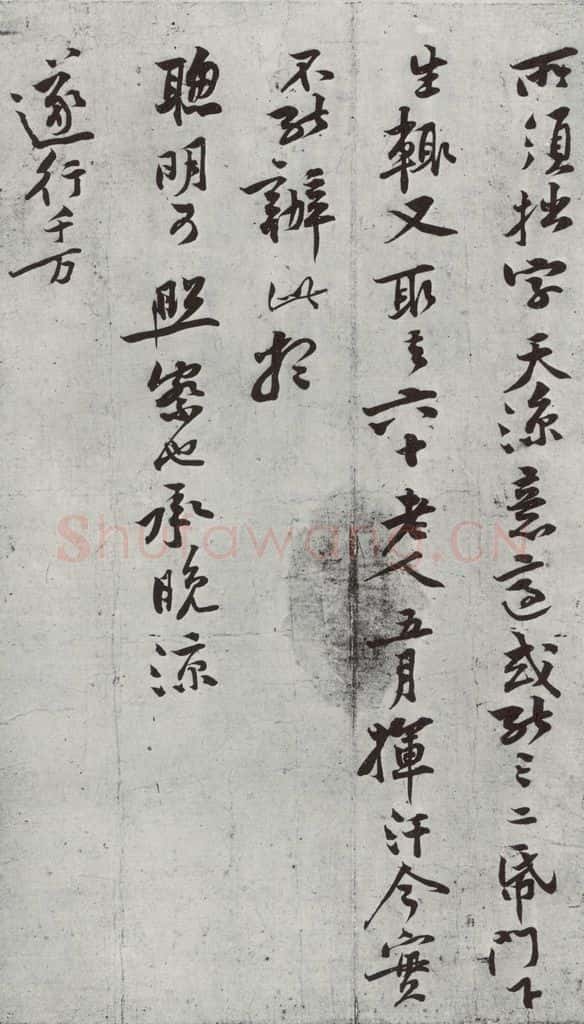 所須拙字天涼意適或能三二紙門下
生輒又取去六十老人五月揮汗今實
不能辦此想
聰明可照察也承晚涼
遂行千万
Shufawang.CN